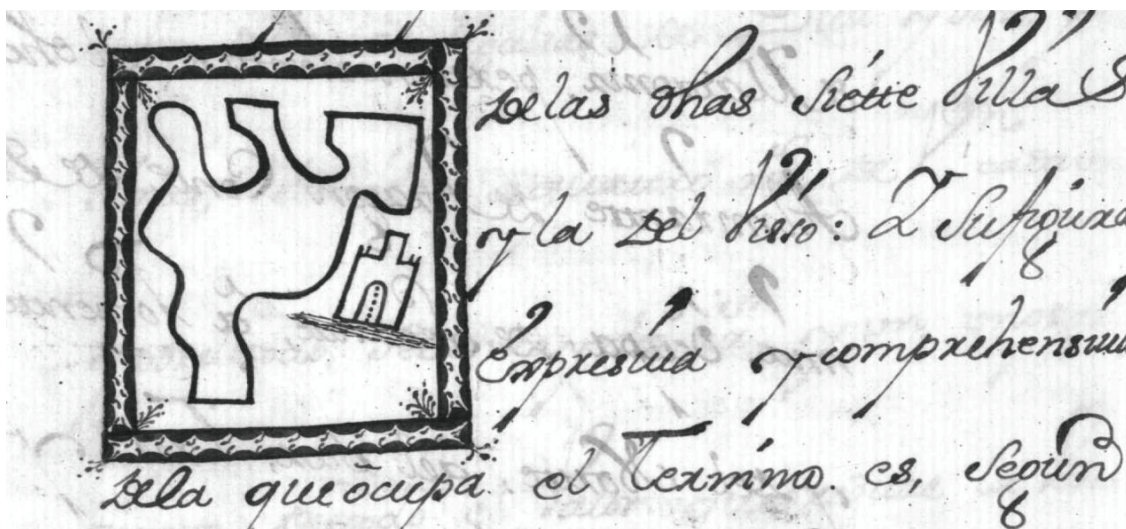 Delas dhas Siétte Villas
y la Del Visso: Y su figura
Expresiva y comprehensiva
Dela que ôcupa. el Termino. es, Segun